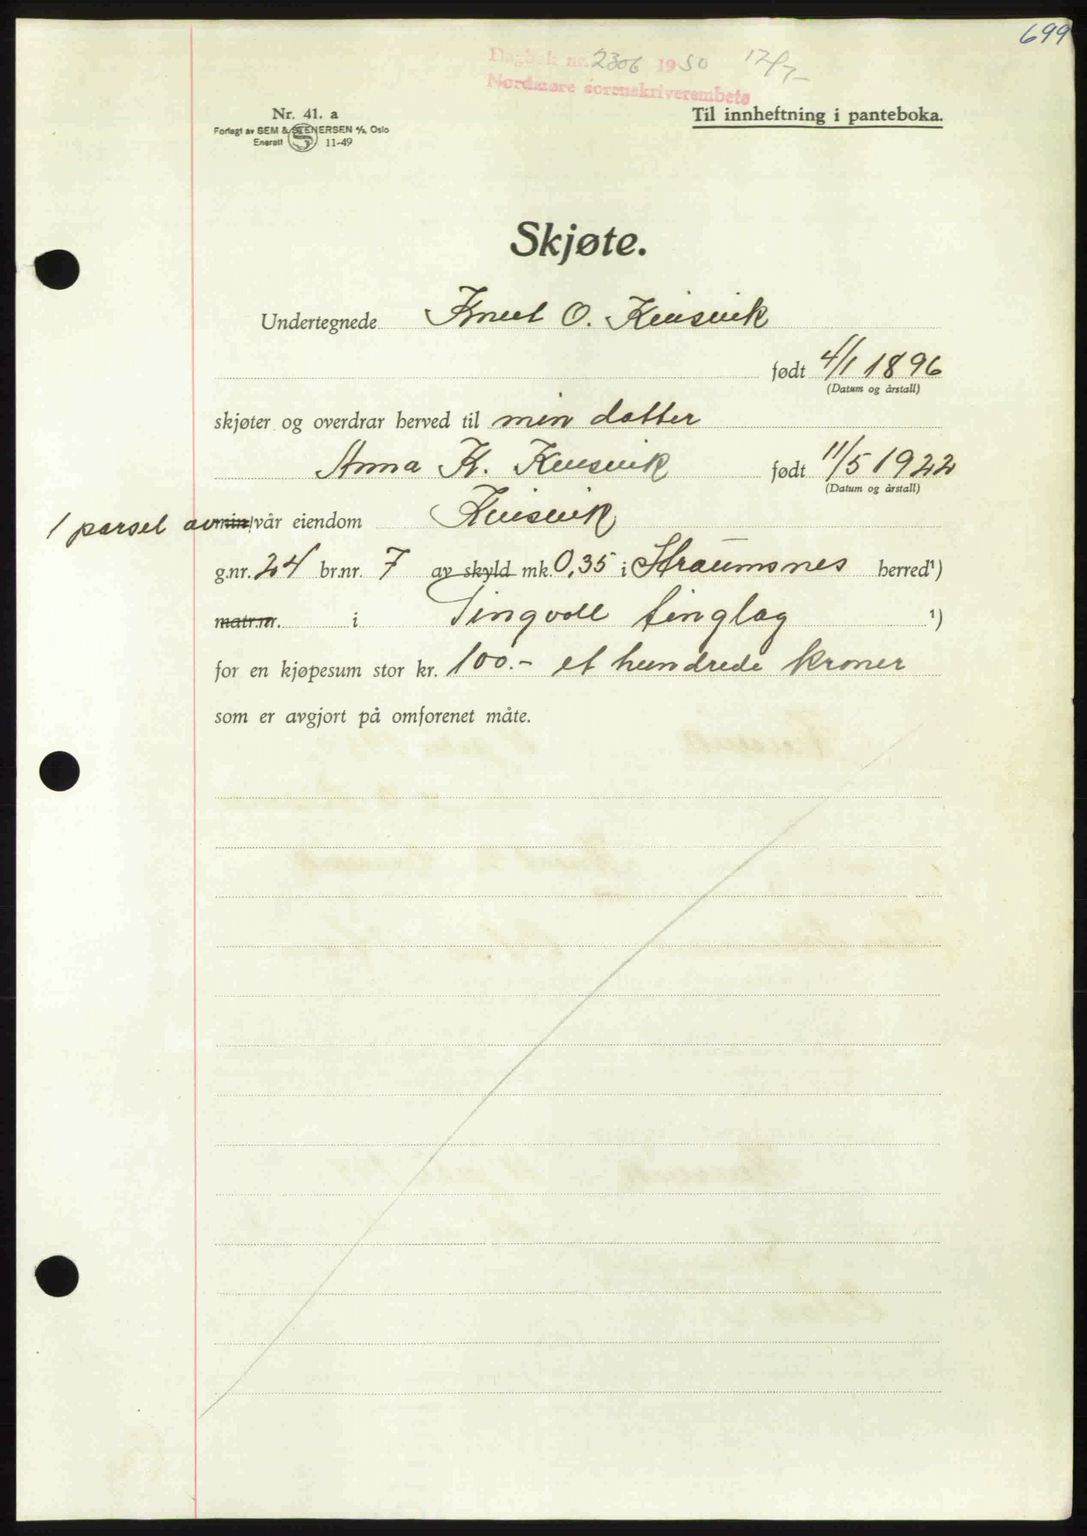 699
Dagbok nr. 2306 1950 12/7-
Nordmøre sorenskriverembete
Nr. 41. a
Forlagt av SEM & STENERSEN A/S, Oslo
Enerett 11-49
Til innheftning i panteboka.
Skjøte.
Undertegnede Knut O. Kvisvik
født 4/1 1896
(Datum og årstall)
skjøter og overdrar herved til min datter
Anna K. Kvisvik født 11/5 1922
(Datum og årstall)
1 parsel av min/vår eiendom Kvisvik
g.nr. 24 br.nr. 7 av skyld mk. 0,35 i Straumsnes herred¹)
matr.nr. i Tingvoll tinglag ¹)
for en kjøpesum stor kr. 100.- et hundrede kroner
som er avgjort på omforenet måte.